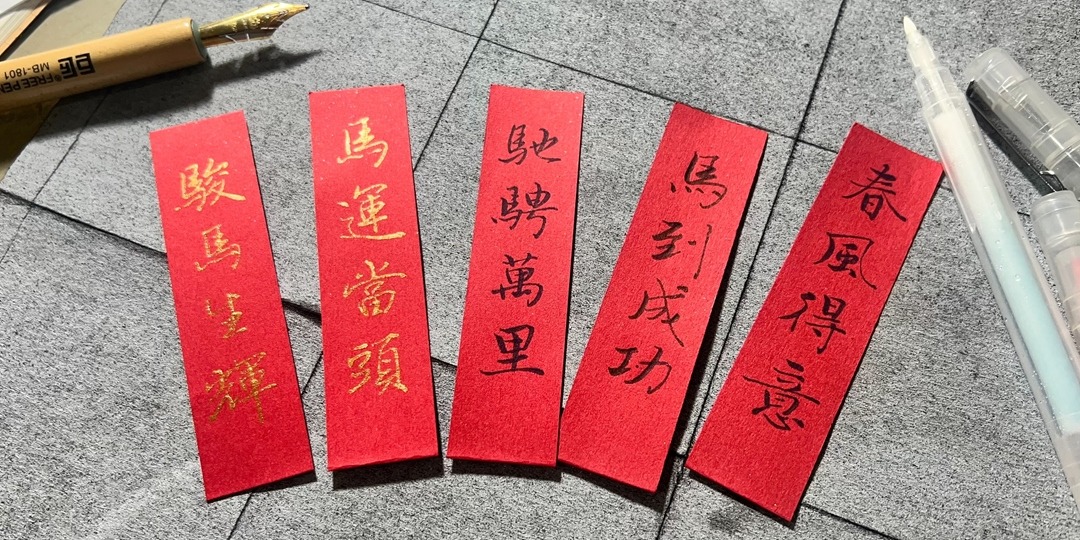 駿馬生輝
馬運當頭
馳騁萬里
馬到成功
春風得意
FREE PEN
MB-1801